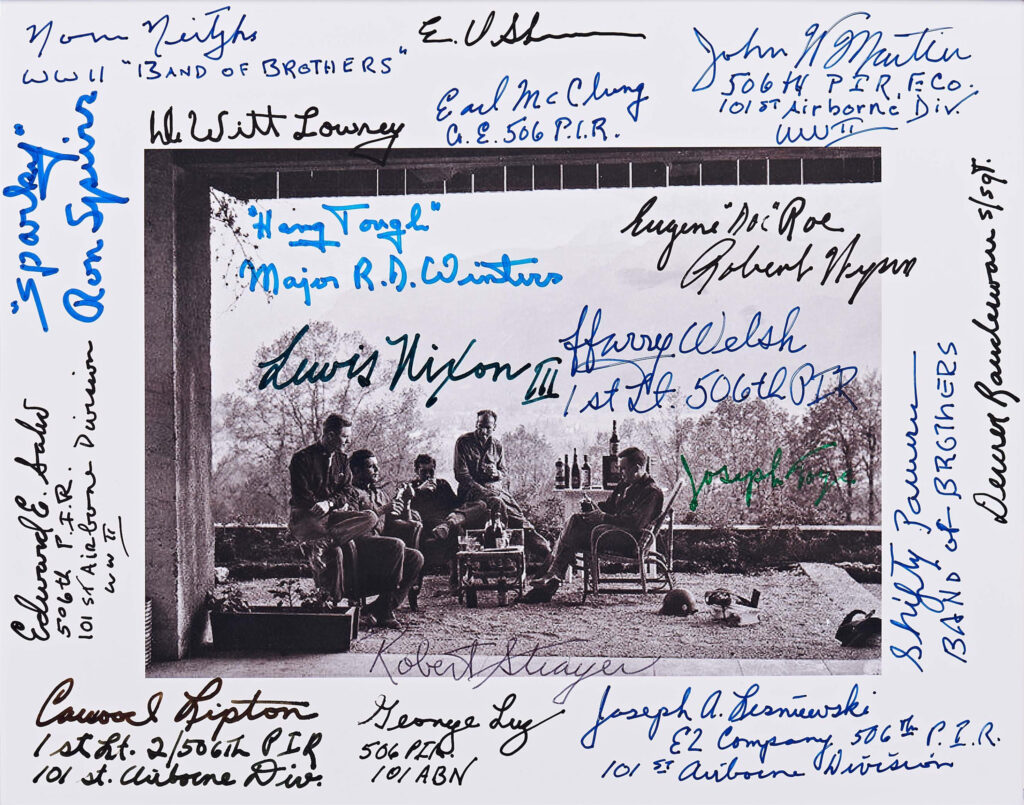 Norm Neitzke
WW II "BAND OF BROTHERS"
E. V Shames
John W Martin
506th P.I.R. E Co.
101ST Airborne Div.
WW II
Earl McClung
Co. E. 506 P.I.R.
DeWitt Lowrey
"Sparky"
Ron Speirs
"Hang Tough"
Major R.D. Winters
Eugene "Doc" Roe
Robert Wynn
Lewis Nixon III
Harry Welsh
1st Lt. 506th PIR
Joseph Toye
S/SGT.
Edward E.
506th P.I.R.
101ST Airborne Division
WW II
Shifty Powers
BAND of BROTHERS
Robert Strayer
Carwood Lipton
1st Lt. 2/506th PIR
101 st. Airborne Div.
George Luz
506 PIR.
101 ABN
Joseph A. Lesniewski
E2 Company 506th P.I.R.
101ST Airborne Division